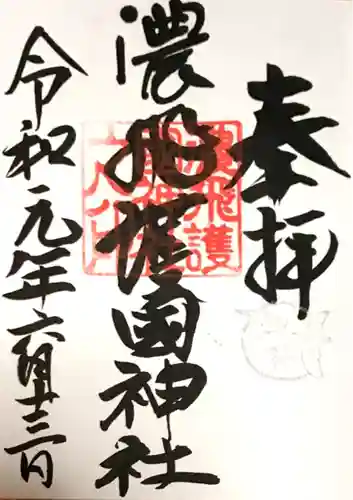 奉拝
濃飛護國神社
令和元年六月廿三日